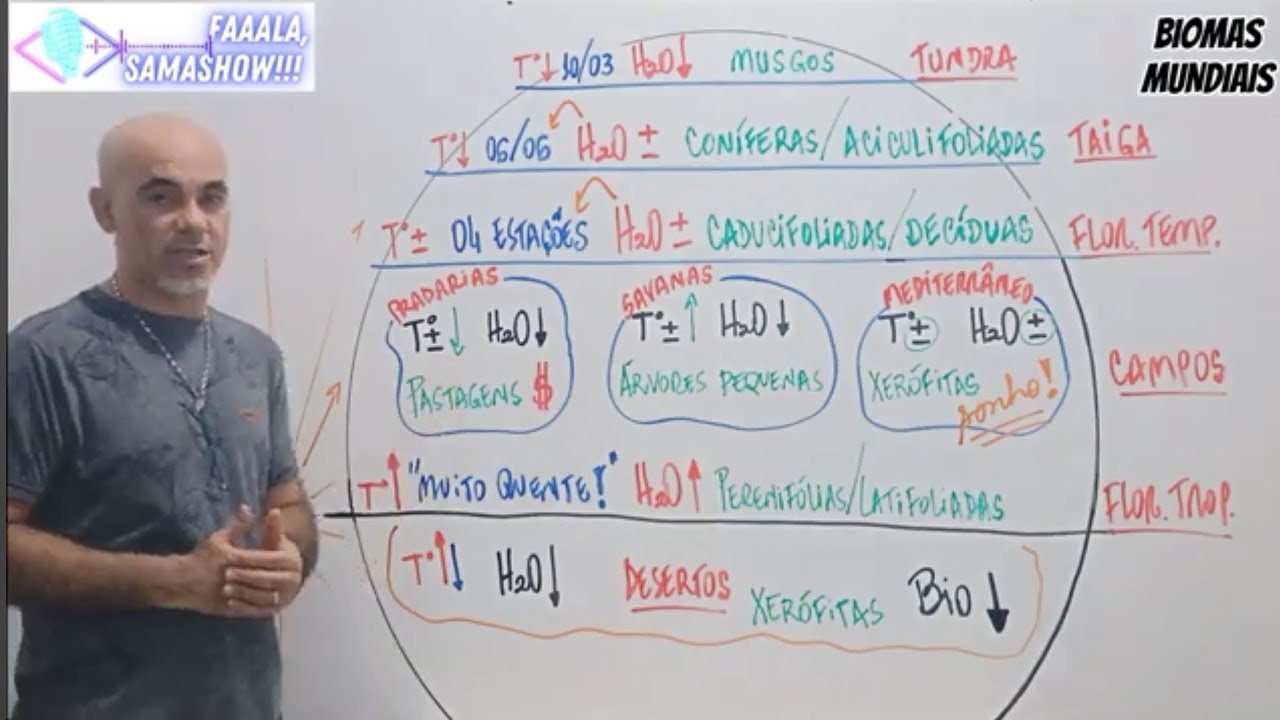 FAAALA,
SAMASHOW!!!
BIOMAS
MUNDIAIS
T°↓ 10/03 H2O↓ MUSGOS TUNDRA
T°↓ 06/06 H2O ± CONÍFERAS/ACICULIFOLIADAS TAIGA
T°± 04 ESTAÇÕES H2O ± CADUCIFOLIADAS/DECÍDUAS FLOR. TEMP.
PRADARIAS
T°± ↓ H2O↓
PASTAGENS $
SAVANAS
T°± ↑ H2O↓
ÁRVORES PEQUENAS
MEDITERRÂNEO
T°± H2O±
XERÓFITAS
sonho!
CAMPOS
T°↑ "MUITO QUENTE!" H2O↑ PERENIFÓLIAS/LATIFOLIADAS FLOR. TROP.
T°↑↓ H2O↓ DESERTOS XERÓFITAS Bio↓